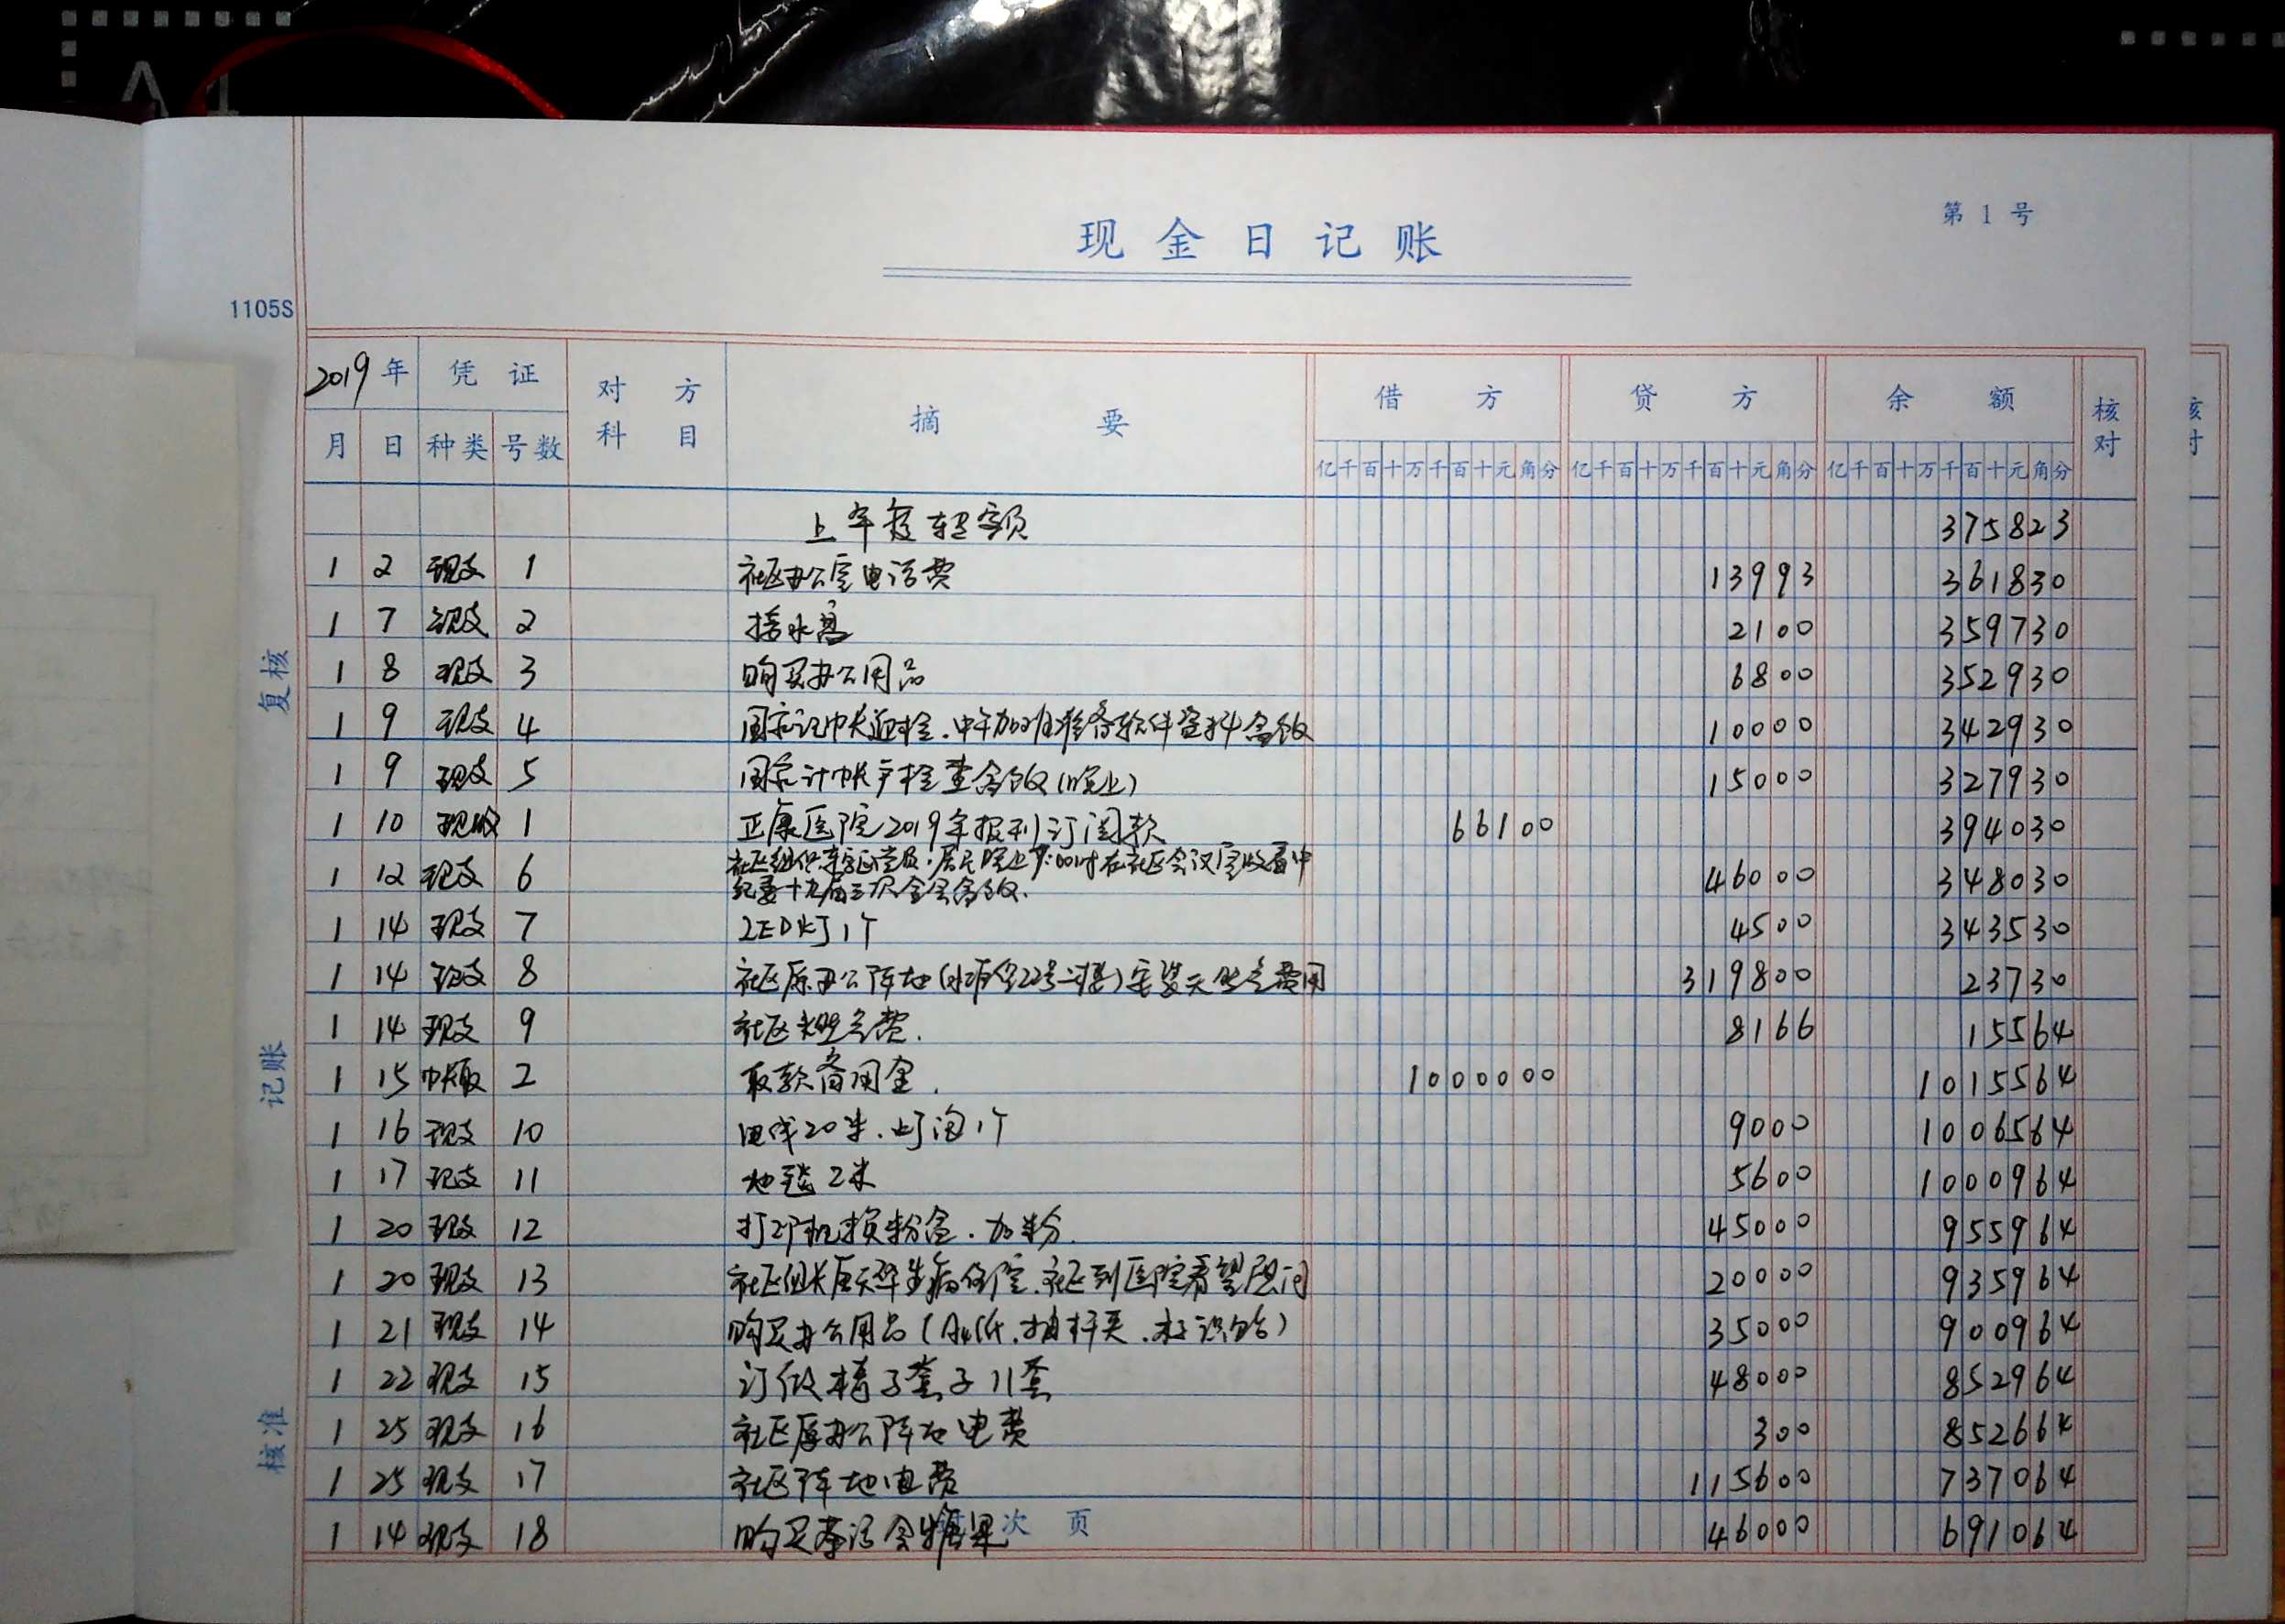 第 1 号
现 金 日 记 账
1105S
2019 年 凭 证 对 方 科 目 摘 要 借 方 贷 方 余 额 核对
月 日 种类 号数 亿千百十万千百十元角分 亿千百十万千百十元角分 亿千百十万千百十元角分
上年度转额 375823
1 2 现支 1 社区办公室电话费 13993 361830
1 7 现支 2 接水 2100 359730
1 8 现支 3 购买办公用品 6800 352930
1 9 现支 4 国家记帐迎检.中午加班准备软件资料 10000 342930
1 9 现支 5 国家计帐户检查(晚上) 15000 327930
1 10 现收 1 正康医院2019年报刊订阅款 66100 394030
1 12 现支 6 社区组织辖区党员.居民晚上7:00时在社区会议室收看中 46000 348030
纪委十九届三次全会
1 14 现支 7 LED灯1个 4500 343530
1 14 现支 8 社区原办公阵地(22号二楼)安装天然气费用 319800 23730
1 14 现支 9 社区天然气费. 8166 15564
1 15 帐取 2 取款备用金. 1000000 1015564
1 16 现支 10 电线20米.灯泡1个 9000 1006564
1 17 现支 11 地毯2米 5600 1000964
1 20 现支 12 打印机换粉盒.加粉. 45000 955964
1 20 现支 13 社区组长生病住院.社区到医院看望慰问 20000 935964
1 21 现支 14 购买办公用品(A4纸.抽杆夹.) 35000 900964
1 22 现支 15 订做椅子套子11套 48000 852964
1 25 现支 16 社区原办公阵地电费 300 852664
1 25 现支 17 社区阵地电费 115600 737064
1 14 现支 18 购买茶话会糖果 46000 691064
次 页
复核
记账
核准
核对